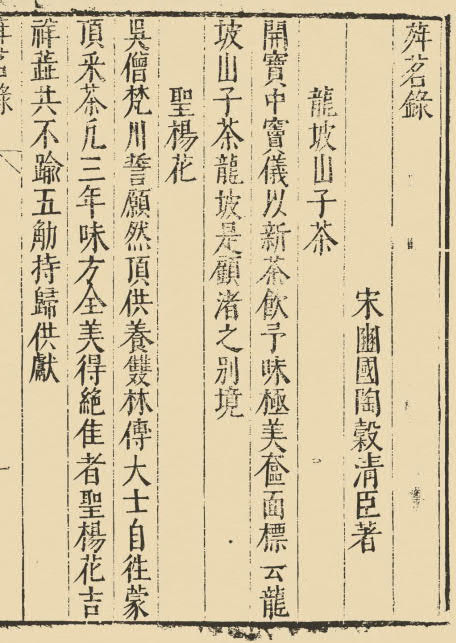 荈茗錄
宋豳國陶穀清臣著
龍坡山子茶
開寶中竇儀以新茶飲予味極美奩面標云龍
坡山子茶龍坡是顧渚之别境
聖楊花
吳僧梵川誓願然頂供養雙林傅大士自徃蒙
頂采茶凡三年味方全美得絶隹者聖楊花吉
祥蕋共不踰五觔持歸供獻